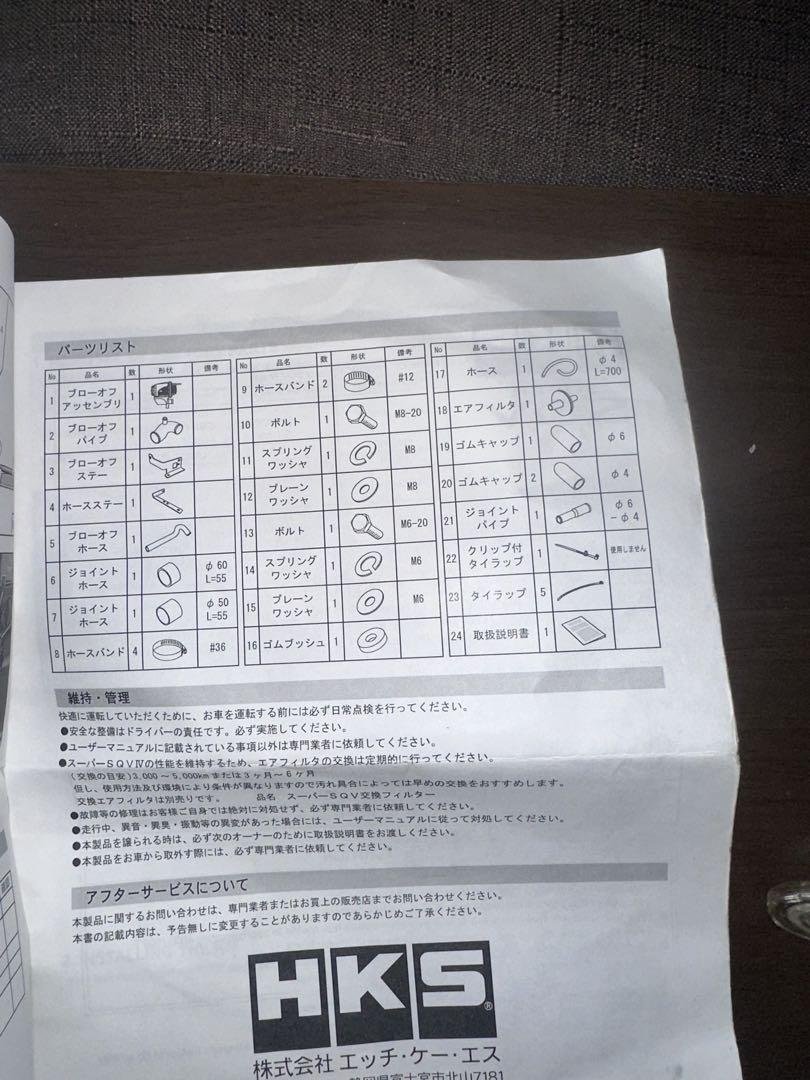 パーツリスト
No 品名 数 形状 備考
1 ブローオフアッセンブリ 1
2 ブローオフパイプ 1
3 ブローオフステー 1
4 ホースステー 1
5 ブローオフホース 1
6 ジョイントホース 1 φ60 L=55
7 ジョイントホース 1 φ50 L=55
8 ホースバンド 4 #36
No 品名 数 形状 備考
9 ホースバンド 2 #12
10 ボルト 1 M8-20
11 スプリングワッシャ 1 M8
12 プレーンワッシャ 1 M8
13 ボルト 1 M6-20
14 スプリングワッシャ 1 M6
15 プレーンワッシャ 1 M6
16 ゴムブッシュ 1
No 品名 数 形状 備考
17 ホース 1 φ4 L=700
18 エアフィルタ 1
19 ゴムキャップ 1 φ6
20 ゴムキャップ 2 φ4
21 ジョイントパイプ 1 φ6-φ4
22 クリップ付タイラップ 1 使用しません
23 タイラップ 5
24 取扱説明書 1
維持・管理
快適に運転していただくために、お車を運転する前には必ず日常点検を行ってください。
●安全な整備はドライバーの責任です。必ず実施してください。
●ユーザーマニュアルに記載されている事項以外は専門業者に依頼してください。
●スーパーSQVⅣの性能を維持するため、エアフィルタの交換は定期的に行ってください。
(交換の目安)3,000～5,000kmまたは3ヶ月～6ヶ月
但し、使用方法及び環境により条件が異なりますので汚れ具合によっては早めの交換をおすすめします。
交換エアフィルタは別売りです。 品名 スーパーSQV交換フィルター
●故障等の修理はお客様ご自身では絶対に対処せず、必ず専門業者に依頼してください。
●走行中、異音・異臭・振動等の異変があった場合には、ユーザーマニュアルに従って対処してください。
●本製品を譲られる時は、必ず次のオーナーのために取扱説明書をお渡しください。
●本製品をお車から取外す際には、必ず専門業者に依頼してください。
アフターサービスについて
本製品に関するお問い合わせは、専門業者またはお買上の販売店までお問い合わせください。
本書の記載内容は、予告無しに変更することがありますのであらかじめご了承ください。
HKS®
株式会社 エッチ・ケー・エス
静岡県富士宮市北山7181